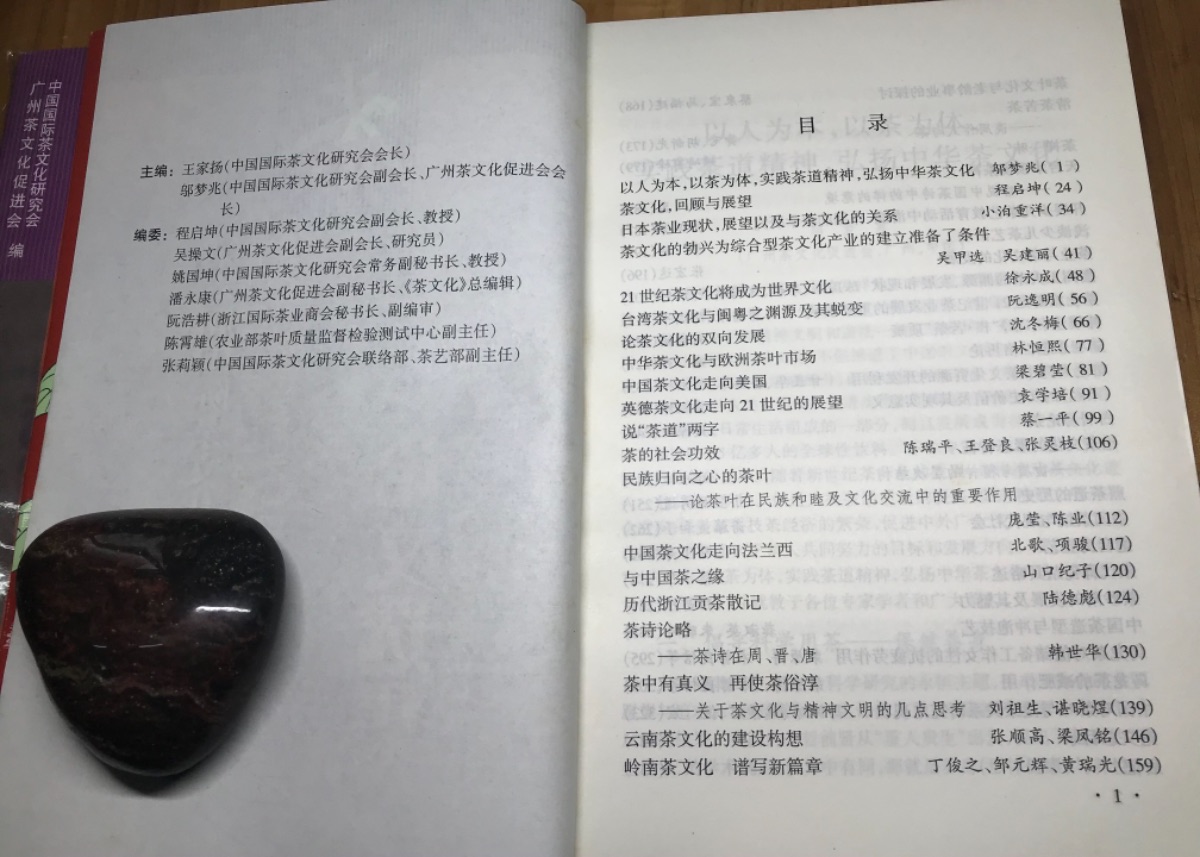 中国国际茶文化研究会
广州茶文化促进会 编
主编：王家扬(中国国际茶文化研究会会长)
邬梦兆(中国国际茶文化研究会副会长、广州茶文化促进会会
长)
编委：程启坤(中国国际茶文化研究会副会长、教授)
吴操文(广州茶文化促进会副会长、研究员)
姚国坤(中国国际茶文化研究会常务副秘书长、教授)
潘永康(广州茶文化促进会副秘书长、《茶文化》总编辑)
阮浩耕(浙江国际茶业商会秘书长、副编审)
陈霄雄(农业部茶叶质量监督检验测试中心副主任)
张莉颖(中国国际茶文化研究会联络部、茶艺部副主任)
目 录
以人为本，以茶为体，实践茶道精神，弘扬中华茶文化 邬梦兆( 1 )
茶文化，回顾与展望 程启坤( 24 )
日本茶业现状，展望以及与茶文化的关系 小泊重洋( 34 )
茶文化的勃兴为综合型茶文化产业的建立准备了条件
吴甲选 吴建丽( 41 )
21世纪茶文化将成为世界文化 徐永成( 48 )
台湾茶文化与闽粤之渊源及其蜕变 阮逸明( 56 )
论茶文化的双向发展 沈冬梅( 66 )
中华茶文化与欧洲茶叶市场 林恒熙( 77 )
中国茶文化走向美国 梁碧莹( 81 )
英德茶文化走向21世纪的展望 袁学培( 91 )
说“茶道”两字 蔡一平( 99 )
茶的社会功效 陈瑞平、王登良、张灵枝(106)
民族归向之心的茶叶
——论茶叶在民族和睦及文化交流中的重要作用
庞莹、陈业(112)
中国茶文化走向法兰西 北歌、项骏(117)
与中国茶之缘 山口纪子(120)
历代浙江贡茶散记 陆德彪(124)
茶诗论略
——茶诗在周、晋、唐 韩世华(130)
茶中有真义 再使茶俗淳
——关于茶文化与精神文明的几点思考 刘祖生、谌晓煜(139)
云南茶文化的建设构想 张顺高、梁凤铭(146)
岭南茶文化 谱写新篇章 丁俊之、邹元辉、黄瑞光(159)
·1·